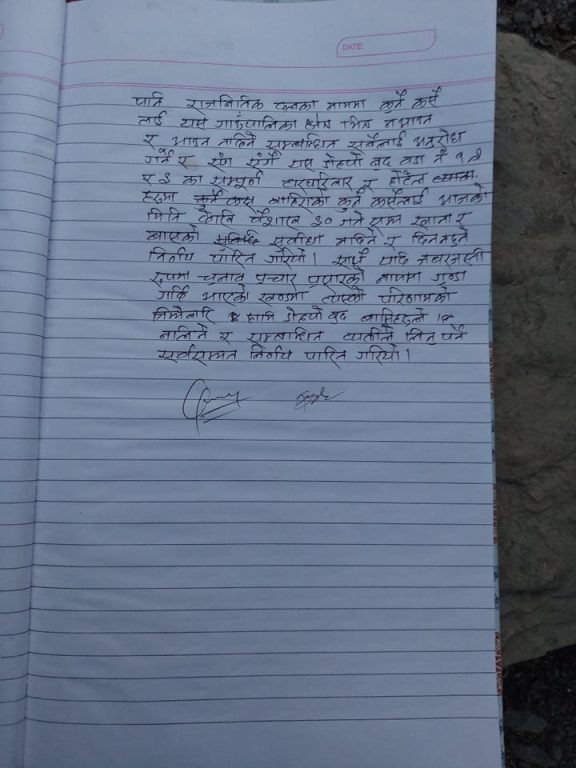 DATE
पनि राजनितिक दलका नाममा कुनै कसै
लाई यस गाउँपालिका क्षेत्र भित्र नआउन
र आउन नदिने सम्बन्धित सबैलाई अनुरोध
गर्ने र संग संगै यस डोल्पो बुद्ध वडा नं १ २
र ३ का सम्पूर्ण घरपरिवार र होटेल व्यवसा
हरुमा कुनै कस बाहिरीका कुनै कसैलाई आजको
मिति देखि बैशाख ३० गते सम्म खाना र
बासको सुविधा नदिने र दिन नहुने
निर्णय पारित गरियो। साथै यदि जबरजस्ती
रुपमा चुनाव प्रचार प्रसारको नाममा गुण्डा
गर्दि भएको खण्डमा त्यसको परिणामको
जिम्मेवारि हामि डोल्पो बुद्ध बासिहरुले
नलिने र सम्बन्धित पार्टीले लिनु पर्ने
सर्वसम्मत निर्णय पारित गरियो।